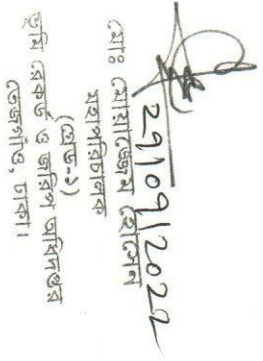 ২৭/০৭/২০২২
মোঃ মোয়াজ্জেম হোসেন
মহাপরিচালক
(গ্রেড-১)
ভূমি রেকর্ড ও জরিপ অধিদপ্তর
তেজগাঁও, ঢাকা।